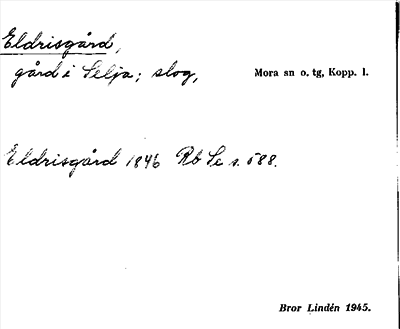 Eldrisgård,
gård i Selja; slog, Mora sn o. tg, Kopp. l.
Eldrisgård 1846 Rb Se s. 588.
Bror Lindén 1945.